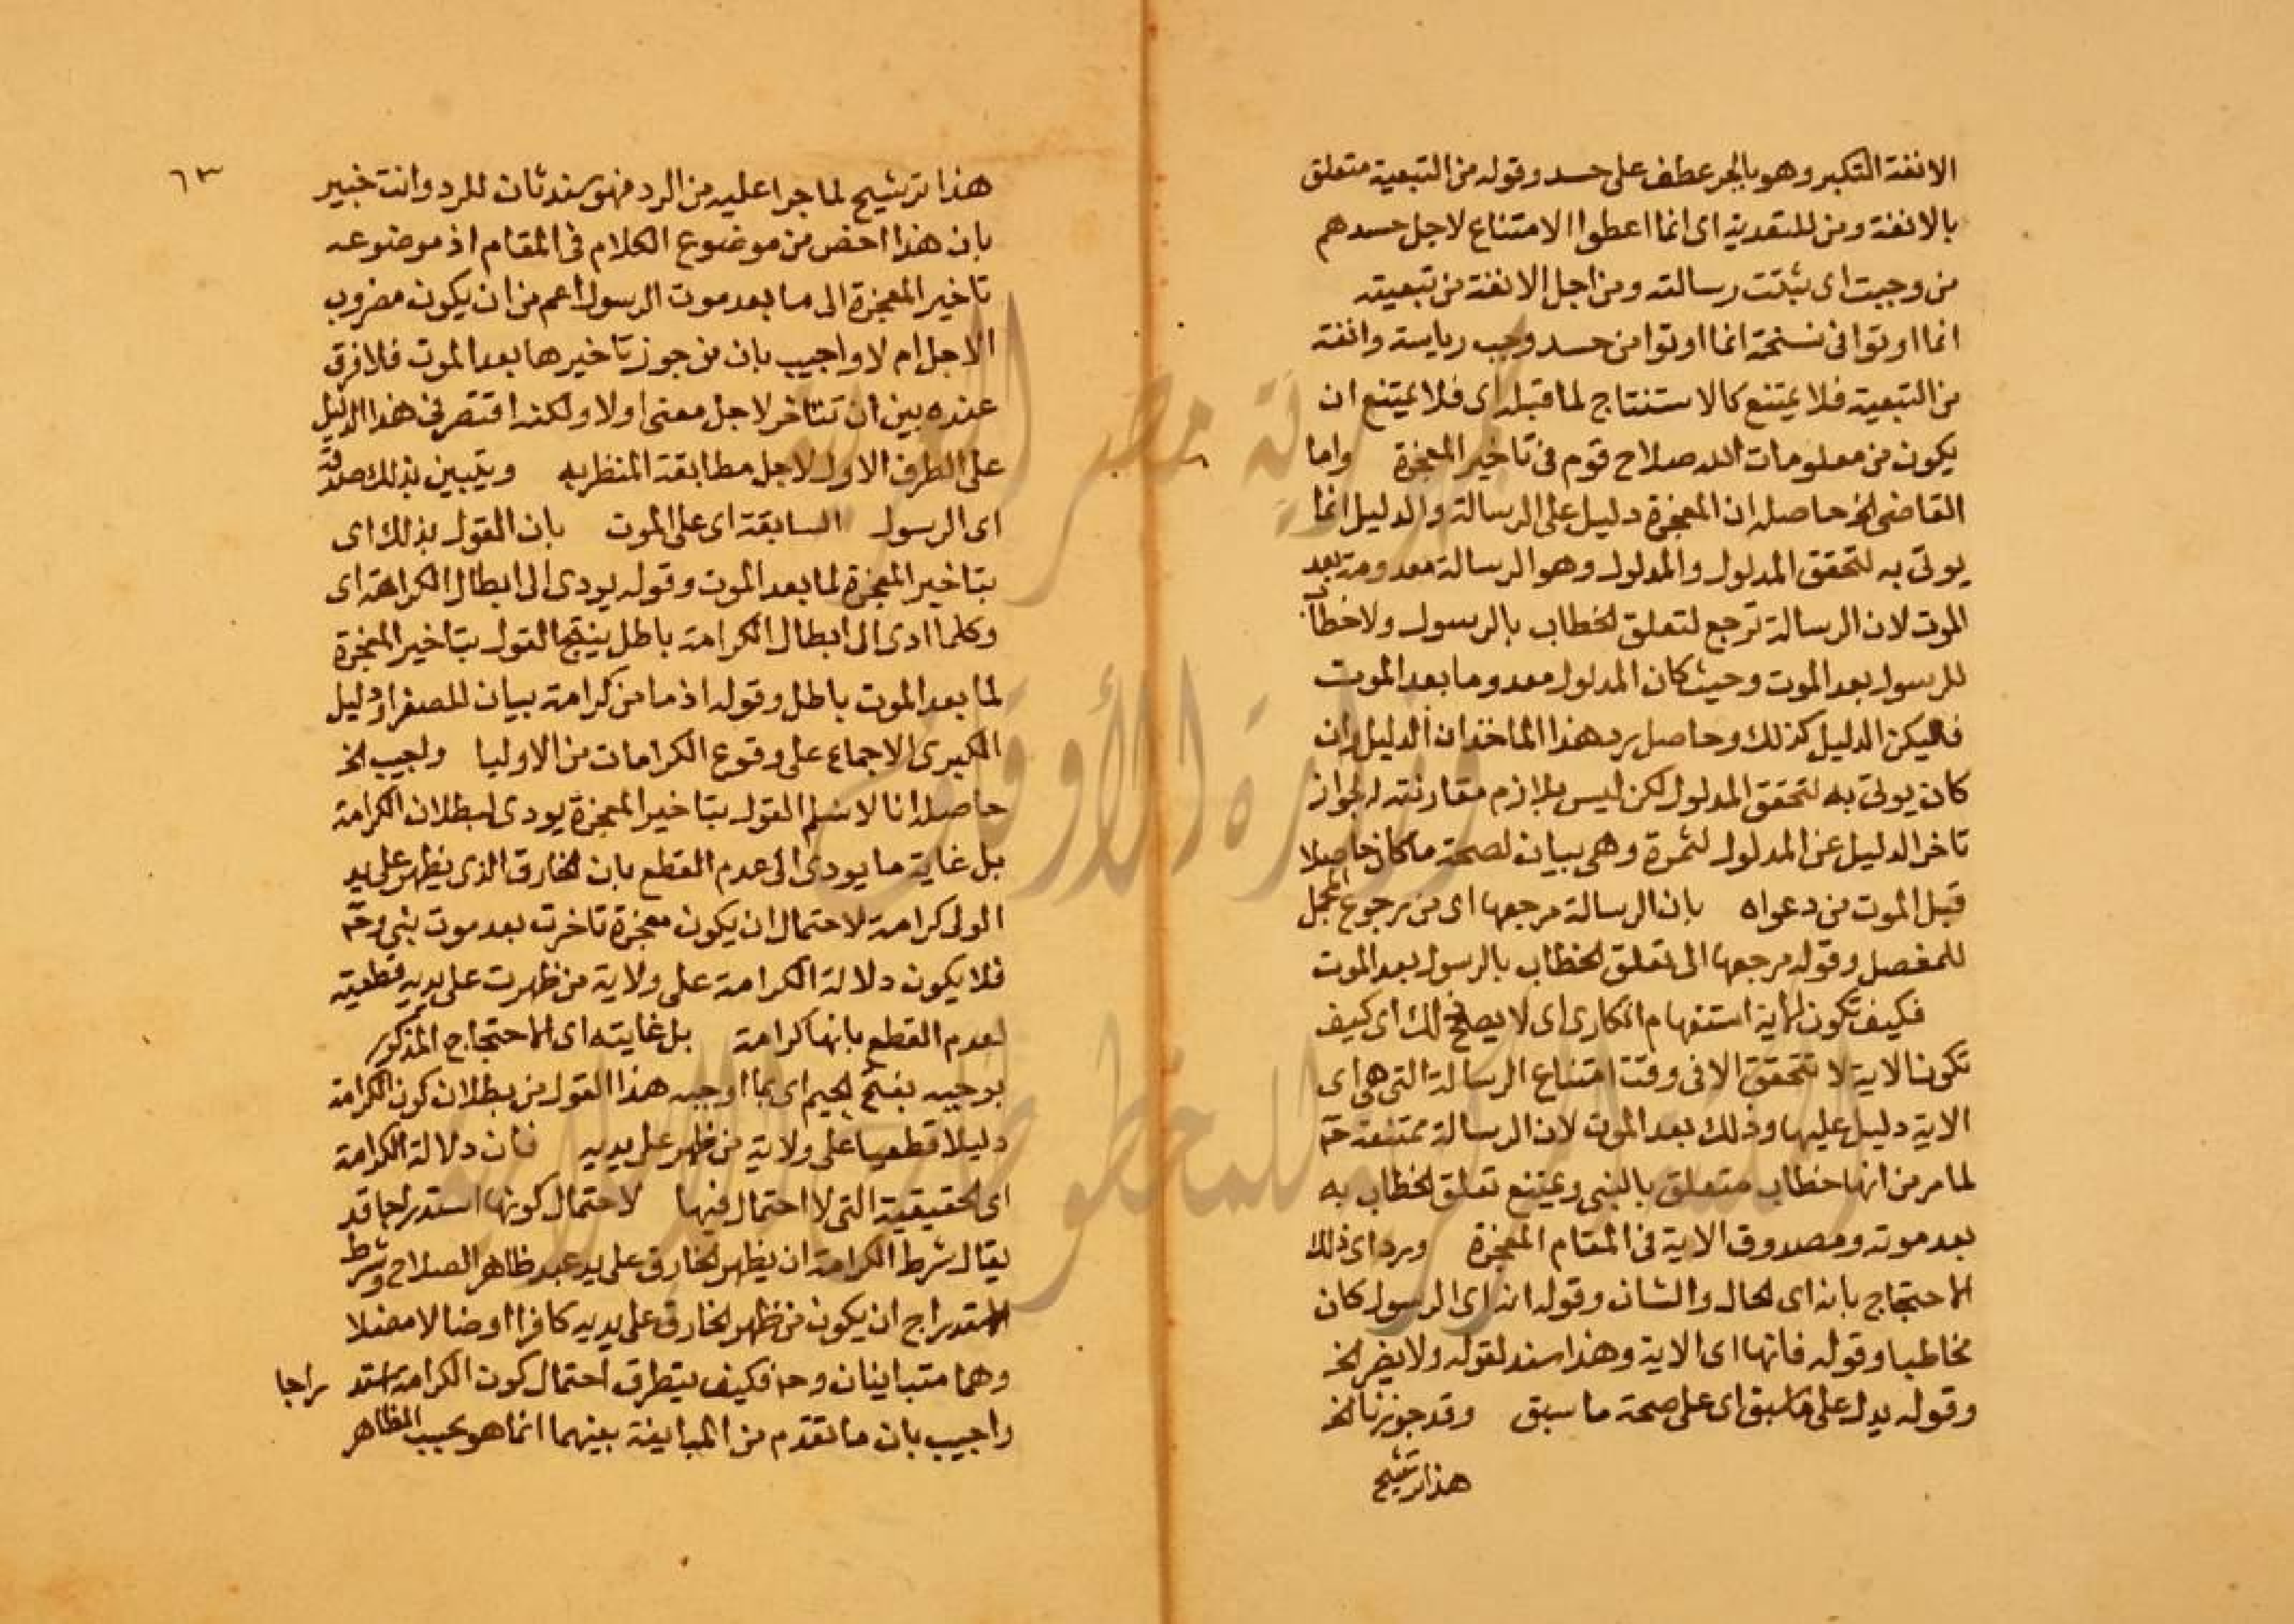 الانفة التكبر وهو بالجر عطف على حسد وقوله من التبعية متعلق
بالانفة ومن للتعدية اى انما اعطوا الامتناع لاجل حسدهم
من وجبت اى ثبتت رسالته ومن اجل الانفة من تبعيته
انما اوتوا فى نسخة انما اوتوا من حسد وحب رياسة وانفة
من التبعية فلا يمتنع كالاستنتاج لما قبله اى فلا يمتنع ان
يكون من معلومات الله صلاح قوم فى تاخير المعجزة واما
القاضى الخ حاصله ان المعجزة دليل على الرسالة والدليل انما
يوتى به لتحقق المدلول والمدلول وهو الرسالة معدومة بعد
الموت لان الرسالة ترجع لتعلق الخطاب بالرسول ولا خطاب
للرسول بعد الموت وحيث كان المدلول معدوما بعد الموت
فليكن الدليل كذلك وحاصل رد هذا الماخذ ان الدليل وان
كان يوتى به لتحقق المدلول لكن ليس بلازم مقارنته له لجواز
تاخر الدليل عن المدلول لثمرة وهى بيان لصحة ما كان حاصلا
قبل الموت من دعواه بان الرسالة مرجعها اى من رجوع المجمل
للمفصل وقوله مرجعها الى تعلق الخطاب بالرسول بعد الموت
فكيف تكون الاية استفهام انكارى اى لا يصلح ذلك اى كيف
تكون الاية لا تتحقق الا فى وقت امتناع الرسالة التى هى اى
الاية دليل عليها وذلك بعد الموت لان الرسالة ممتنعة ح
لما مر من انها خطاب متعلق بالنبى ويمتنع تعلق الخطاب به
بعد موته ومصدوق الاية فى المقام المعجزة ورد اى ذلك
الاحتجاج بانه اى الحال والشان وقوله انه اى الرسول كان
مخاطبا وقوله فانها اى الاية وهذا سند لقوله ولا يضر الخ
وقوله يدل على ما سبق اى على صحة ما سبق وقد جوزنا الخ
هذا ترشيح
٦٣
هذا ترشيح لما جرا عليه من الرد فهو سند ثان للرد وانت خبير
بان هذا اخص من موضوع الكلام فى المقام اذ موضوعه
تاخير المعجزة الى ما بعد موت الرسول اعم من ان يكون مضروب
الاجل ام لا واجيب بان من جوز تاخيرها بعد الموت فلا فرق
عنده بين ان تتاخر لاجل معنى اولا ولكنه اقتصر فى هذا الدليل
على الطرف الاول لاجل مطابقة المنظر به ويتبين بذلك صدقه
اى الرسول السابقة اى على الموت بان القول بذلك اى
بتاخير المعجزة لما بعد الموت وقوله يودى الى ابطال الكرامة اى
وكلما ادى الى ابطال الكرامة باطل ينتج القول بتاخير المعجزة
لما بعد الموت باطل وقوله اذ ما من كرامة بيان للصغرا ودليل
الكبرى الاجماع على وقوع الكرامات من الاوليا واجيب الخ
حاصله انا لا نسلم القول بتاخير المعجزة يودى لبطلان الكرامة
بل غاية ما يودى الى عدم القطع بان الخارق الذى يظهر على يد
الولى كرامة لاحتمال ان يكون معجزة تاخرت بعد موت نبى وح
فلا يكون دلالة الكرامة على ولاية من ظهرت على يديه قطعية
لعدم القطع بانها كرامة بل غايته اى الاحتجاج المذكور
بوجبه بفتح الجيم اى بما اوجبه هذا القول من بطلان كون الكرامة
دليلا قطعيا على ولاية من ظهر على يديه فان دلالة الكرامة
اى الحقيقية التى لا احتمال فيها لاحتمال كونها استدراجا قد
يقال شرط الكرامة ان يظهر الخارق على يد عبد ظاهر الصلاح وشرط
الاستدراج ان يكون من ظهر الخارق على يديه كافرا او ضالا مضلا
وهما متباينان وح فكيف يتطرق احتمال كون الكرامة استد راجا
واجيب بان ما تقدم من المباينة بينهما انما هو بحسب الظاهر